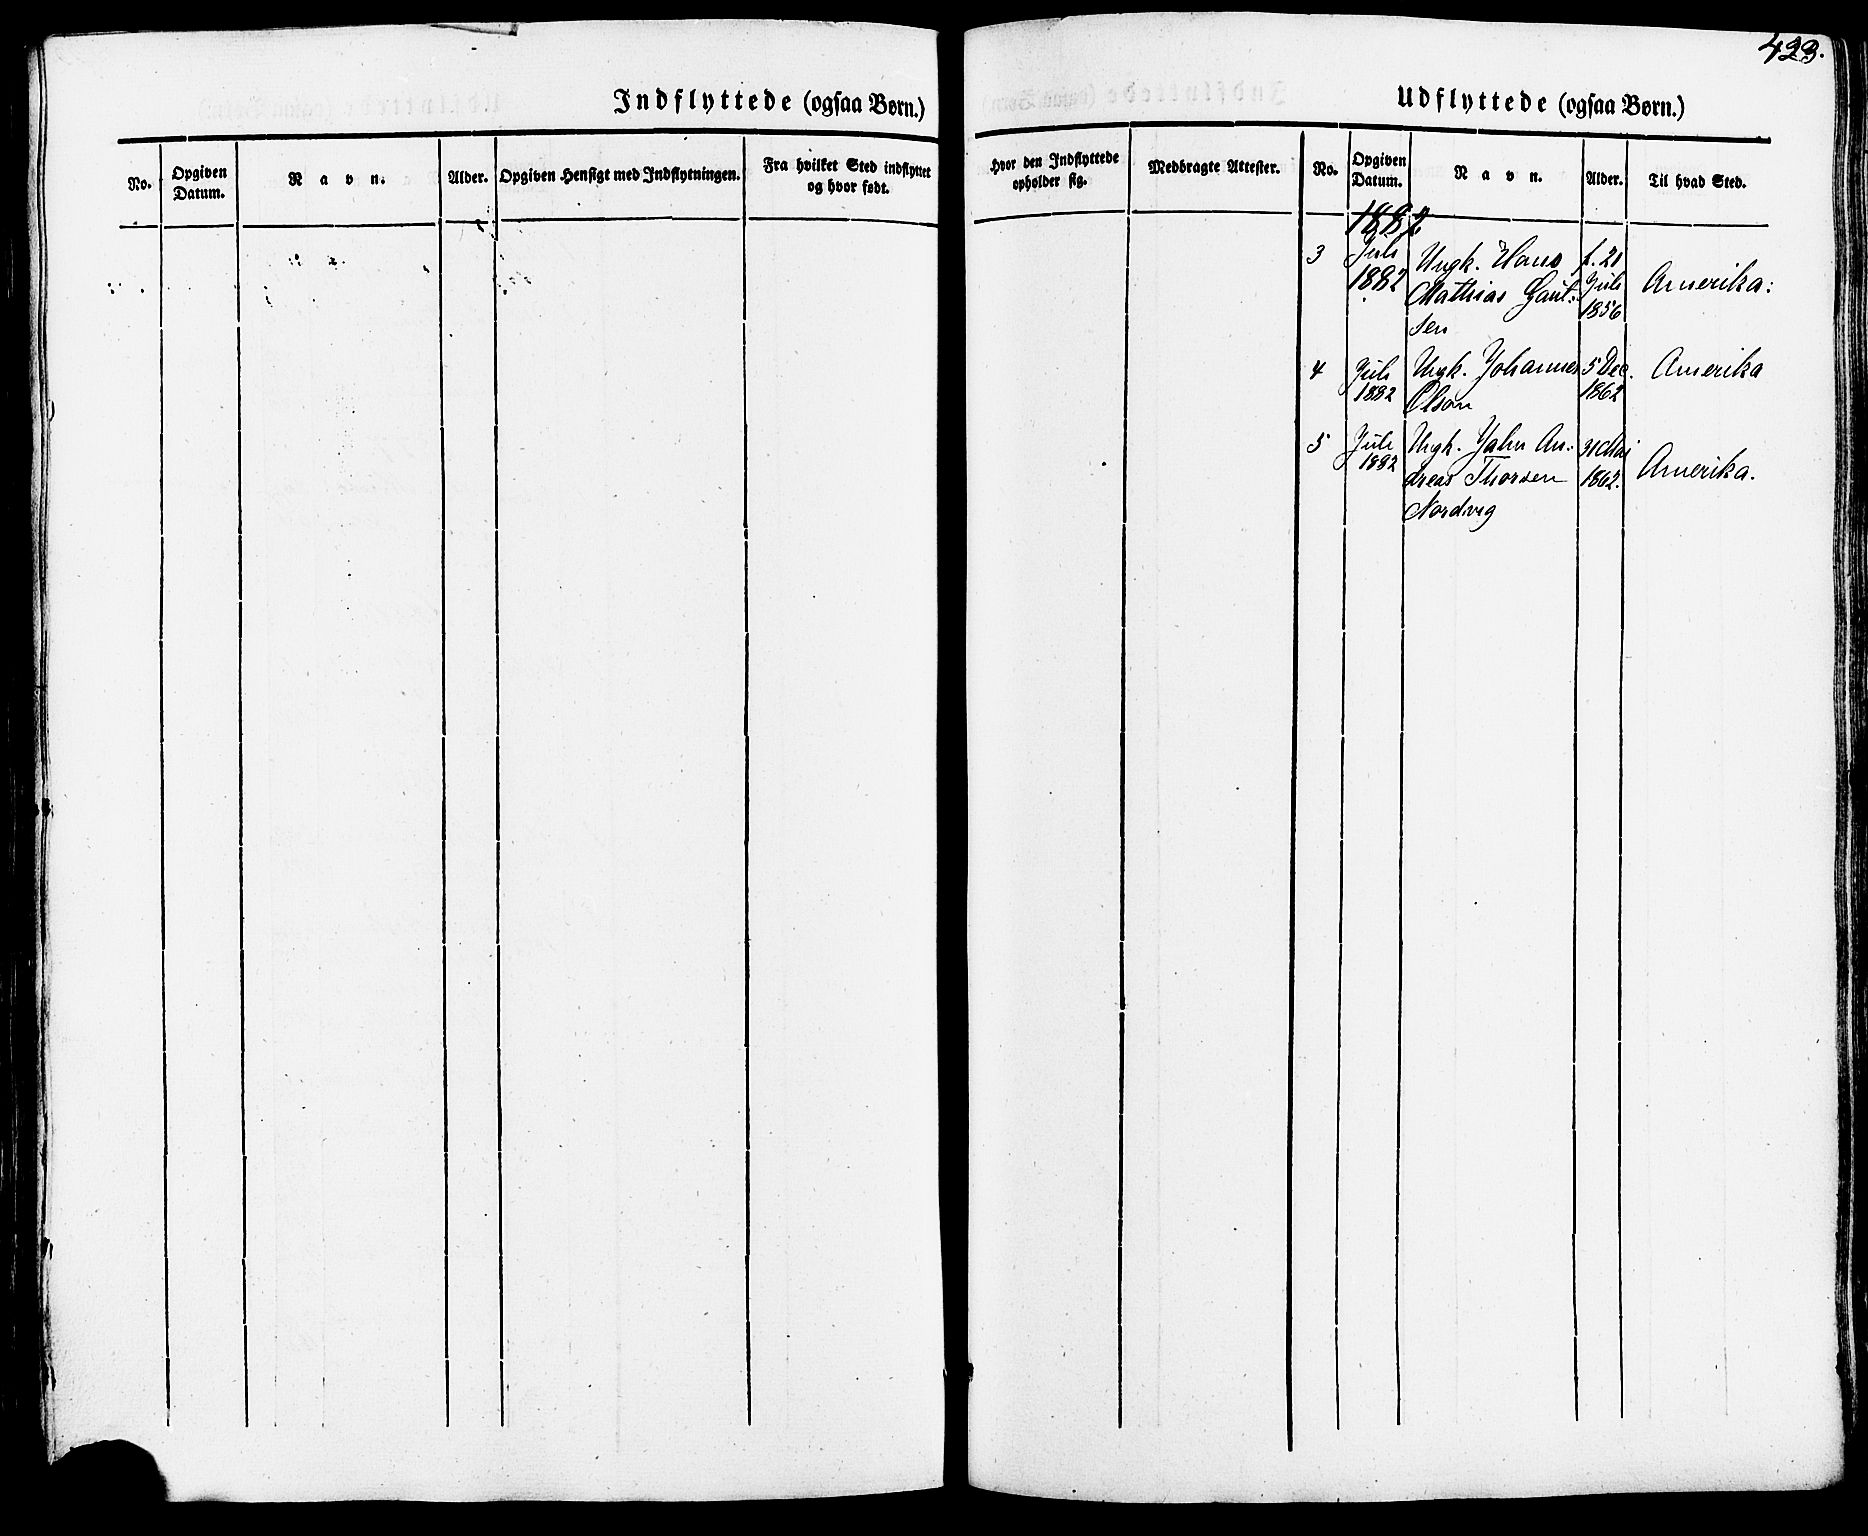 423.
Indflyttede (ogsaa Børn.)
No.
Opgiven
Datum.
Navn.
Alder.
Opgiven Hensigt med Indflytningen.
Fra hvilket Sted indflyttet
og hvor født.
Udflyttede (ogsaa Børn.)
Hvor den Indflyttede
opholder sig.
Medbragte Attester.
No.
Opgiven
Datum.
Navn.
Alder.
Til hvad Sted.
1882
3
Juli
1882
Ungk. Hans
Mathias Gaut:
sen
f. 21
Juli
1856
Amerika:
4
Juli
1882
Ungk. Johannes
Olson
5 Dec.
1862
Amerika
5
Juli
1882
Ungk. Jahn An:
dreas Thorsen
Nordvig
31 Mai
1862.
Amerika.